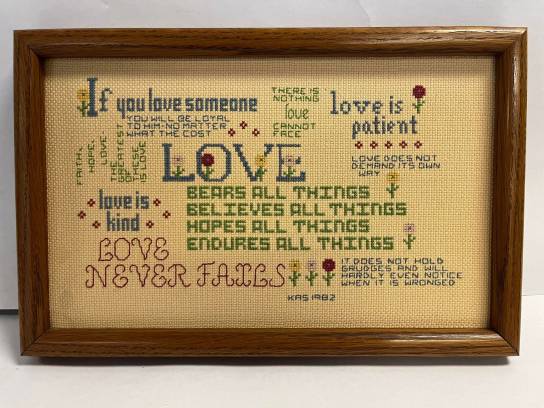 If you love someone
YOU WILL BE LOYAL
TO HIM-NO MATTER
WHAT THE COST
THERE IS
NOTHING
love
CANNOT
FACE
love is
patient
LOVE DOES NOT
DEMAND ITS OWN
WAY
FAITH,
HOPE,
LOVE-
THE
GREATEST
OF
THESE
IS LOVE
LOVE
BEARS ALL THINGS
BELIEVES ALL THINGS
HOPES ALL THINGS
ENDURES ALL THINGS
love is
kind
LOVE
NEVER FAILS
IT DOES NOT HOLD
GRUDGES AND WILL
HARDLY EVEN NOTICE
WHEN IT IS WRONGED
KAS 1982